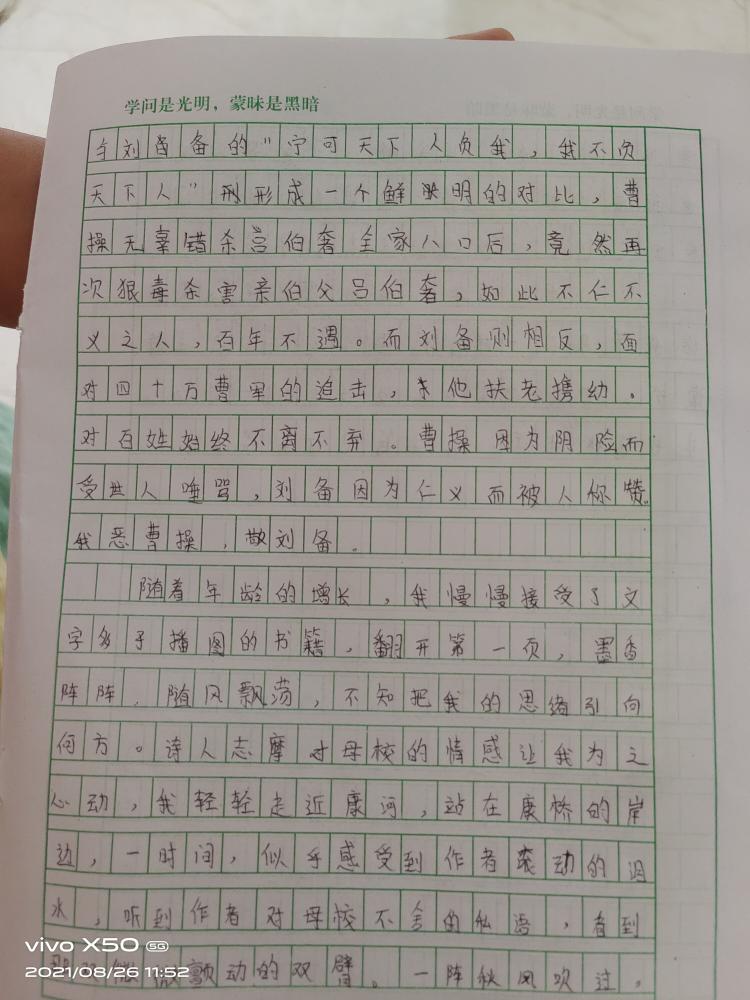 学问是光明，蒙昧是黑暗
与刘备的“宁可天下人负我，我不负
天下人”形成一个鲜明的对比，曹
操无辜错杀吕伯奢全家八口后，竟然再
次狠毒杀害亲伯父吕伯奢，如此不仁不
义之人，百年不遇。而刘备则相反，面
对四十万曹军的追击，他扶老携幼，
对百姓始终不离不弃。曹操因为阴险而
受世人唾骂，刘备因为仁义而被人称赞。
我恶曹操，敬刘备。
随着年龄的增长，我慢慢接受了文
字多于播图的书籍，翻开第一页，墨香
阵阵，随风飘荡，不知把我的思绪引向
何方。诗人志摩对母校的情感让我为之
心动，我轻轻走近康河，站在康桥的岸
边，一时间，似乎感受到作者滚动的泪
水，听到作者对母校不舍的私语，看到
那双微微颤动的双臂。一阵秋风吹过，
vivo X50 5G
2021/08/26 11:52